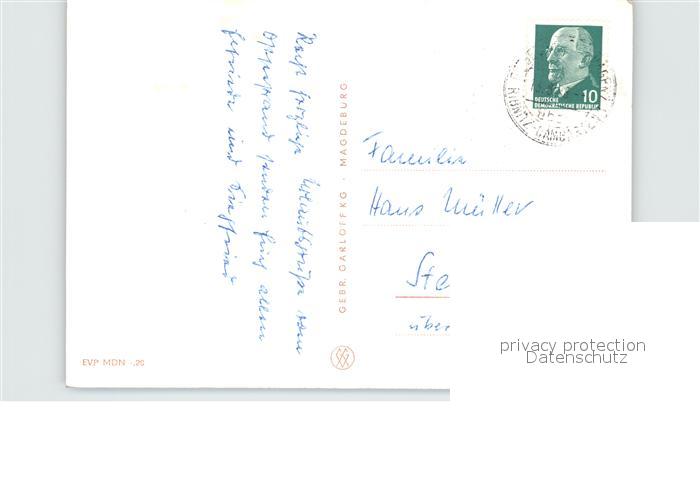 Recht herzliche Urlaubsgrüße vom
Ostseestrand senden Euch allen
Elfriede und Siegfried
GEBR. GARLOFF KG · MAGDEBURG
10
DEUTSCHE
DEMOKRATISCHE REPUBLIK
RIBNITZ-DAMGARTEN
Familie
Hans Müller
Ste
über
EVP MDN -,20
privacy protection
Datenschutz